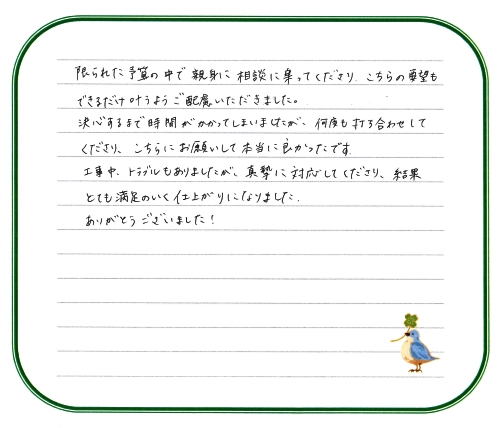 限られた予算の中で親身に相談に乗ってくださり、こちらの要望も
できるだけ叶うようご配慮いただきました。
決心するまで時間がかかってしまいましたが、何度も打ち合わせして
くださり、こちらにお願いして本当に良かったです。
工事中、トラブルもありましたが、真摯に対応してくださり、結果
とても満足のいく仕上がりになりました。
ありがとうございました!